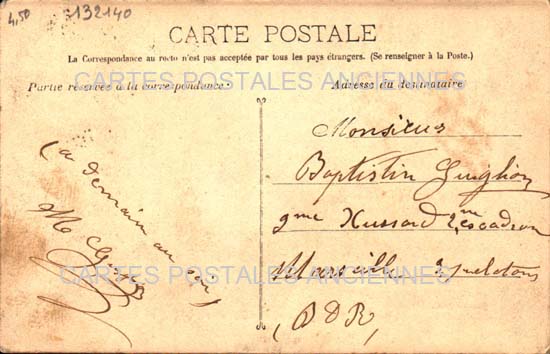 4,50
132140
CARTE POSTALE
La Correspondance au recto n'est pas acceptée par tous les pays étrangers. (Se renseigner à la Poste.)
CARTES POSTALES ANCIENNES
Partie réservée à la correspondance
Adresse du destinataire
a demain au
M
Monsieur
Baptistin
9me Hussard 2me escadron
Marseille
(BDR)
CARTES POSTALES ANCIENNES